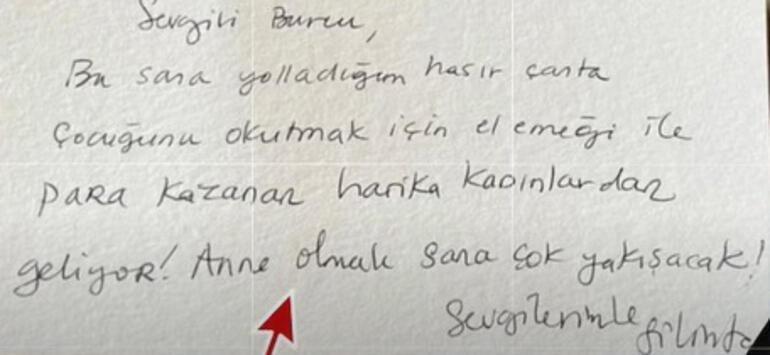 Sevgili Burcu,
Bu sana yolladığım hasır çanta
Çocuğunu okutmak için el emeği ile
para kazanan harika kadınlardan
geliyor! Anne olmak sana çok yakışacak!
Sevgilerimle Filinta